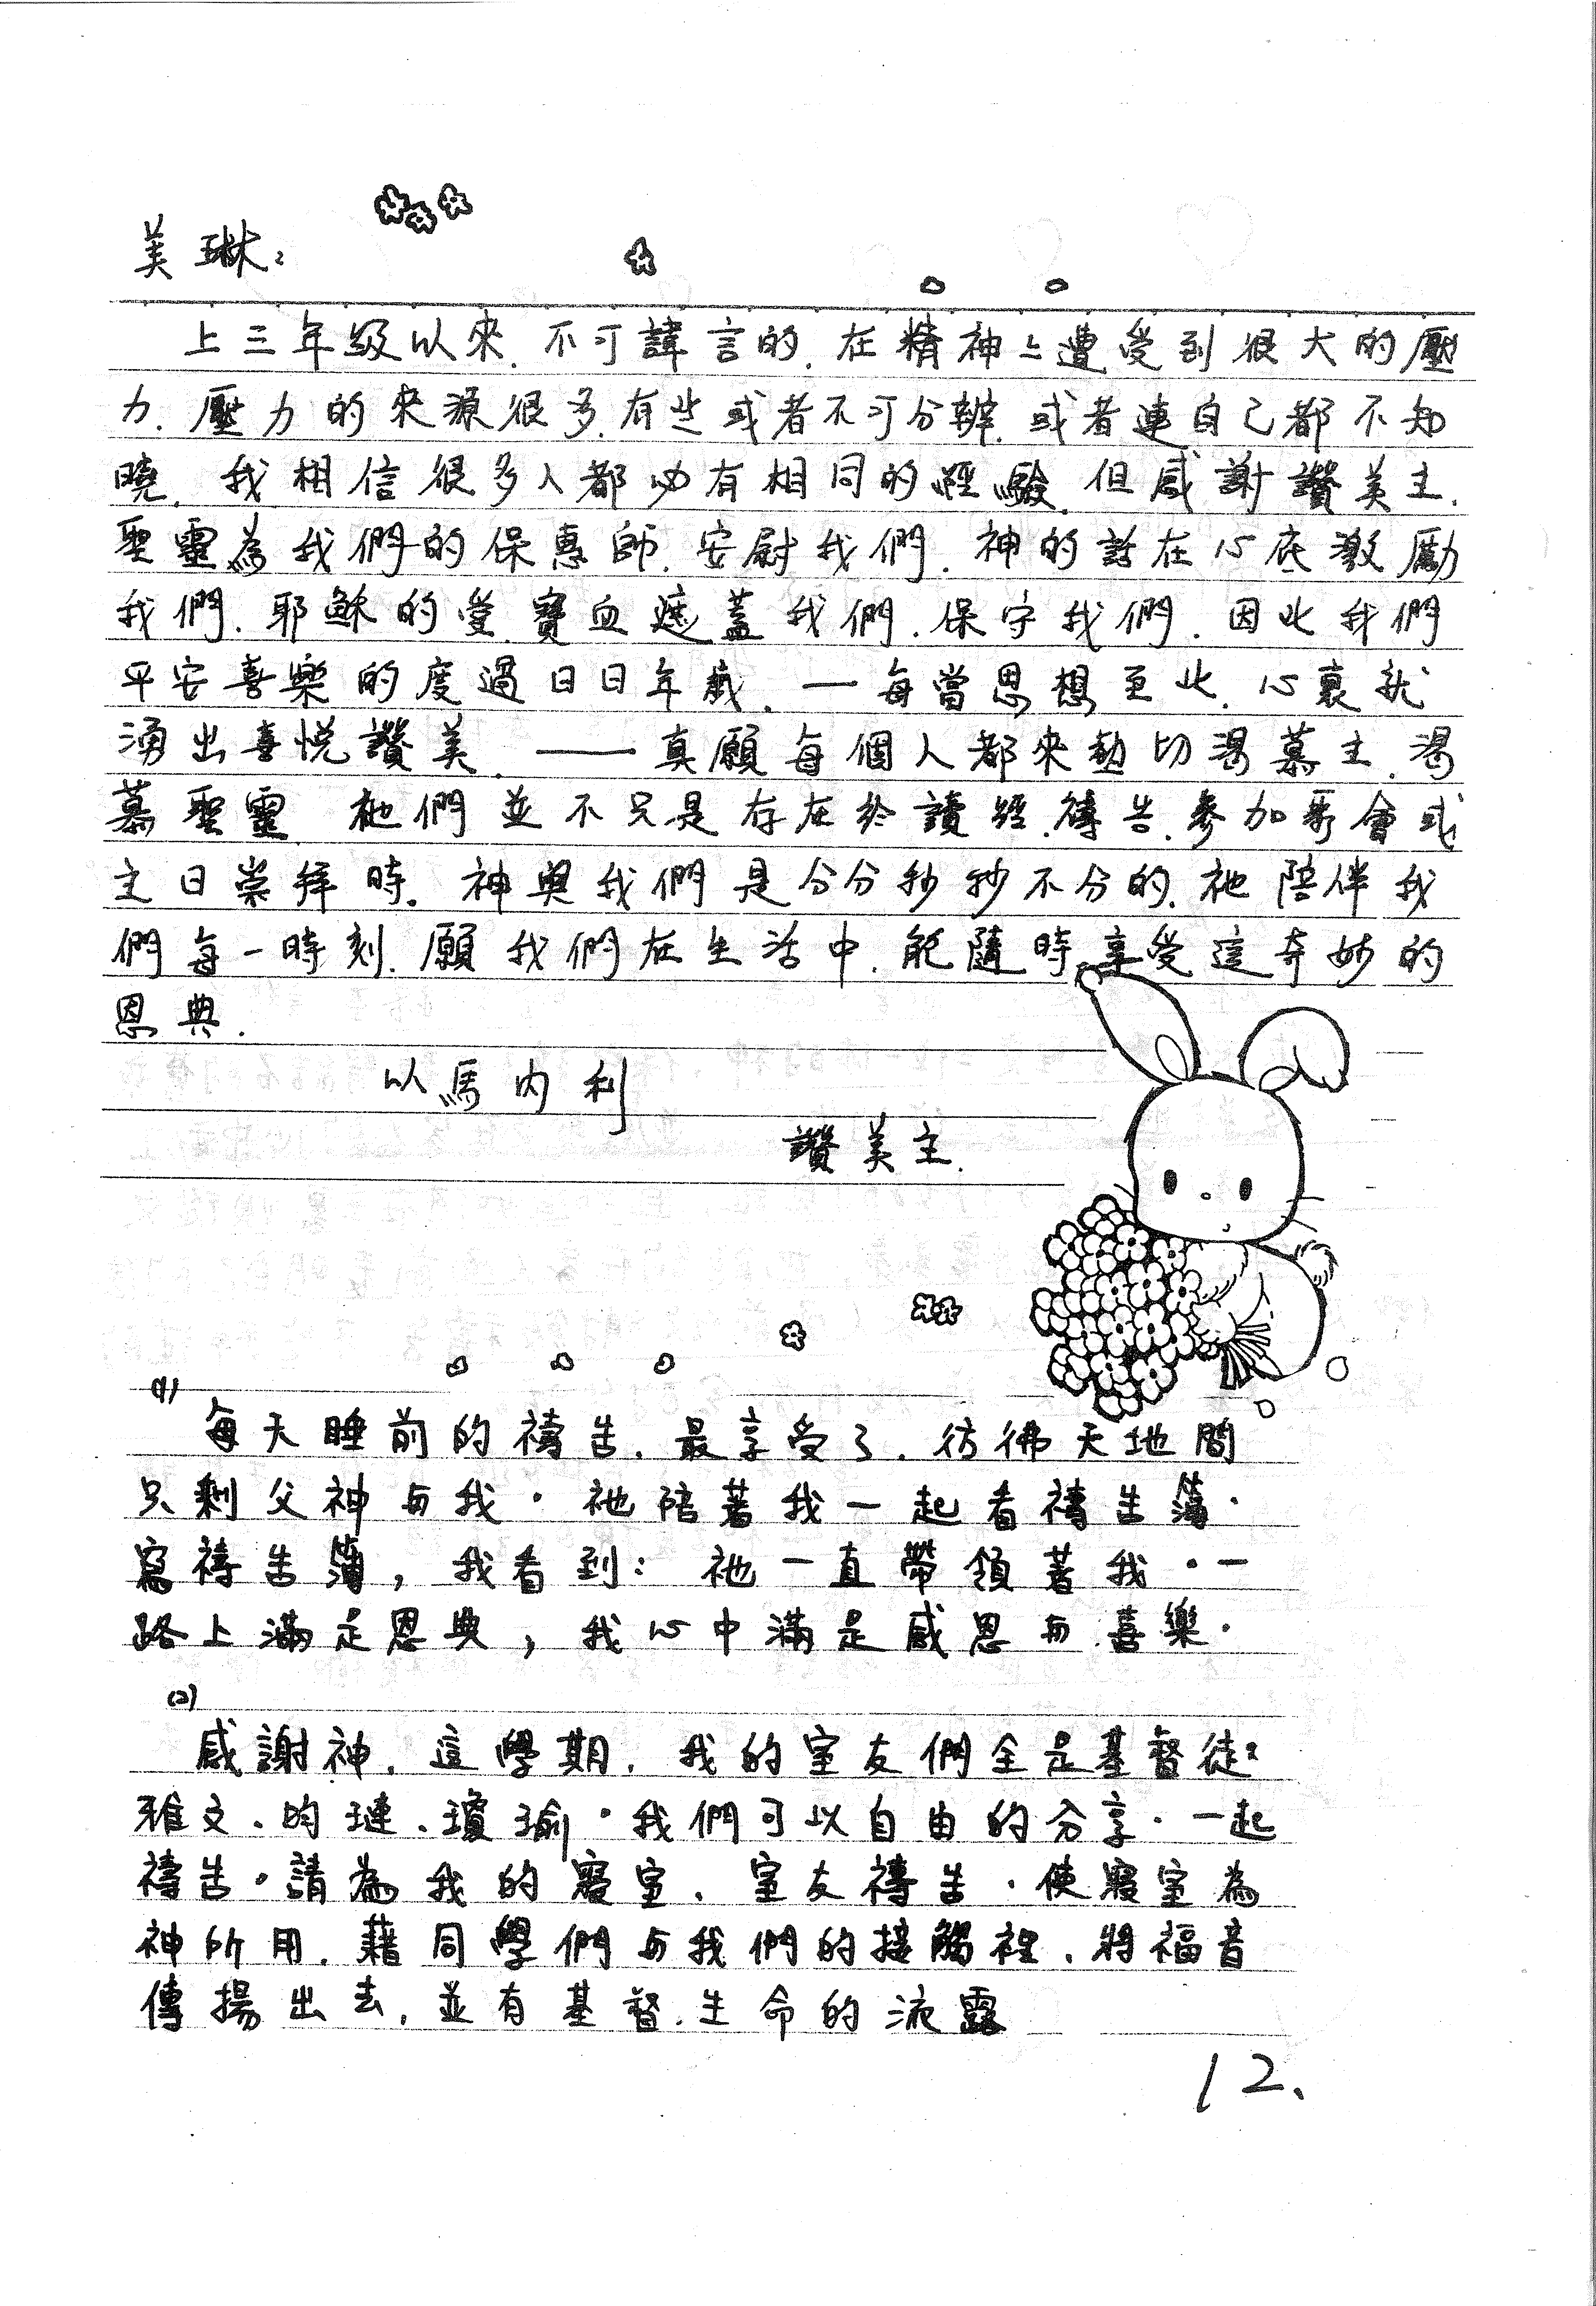 美琳:
上三年級以來.不可諱言的.在精神上遭受到很大的壓
力.壓力的來源很多.有些或者不可分辨.或者連自己都不知
曉.我相信很多人都必有相同的經驗.但感謝讚美主.
聖靈為我們的保惠師.安尉我們.神的話在心底激勵
我們.耶穌的愛.寶血遮蓋我們.保守我們.因此我們
平安喜樂的度過日日年歲.—每當思想至此.心裏就
湧出喜悅讚美.——真願每個人都來熱切渴慕主.渴
慕聖靈.祂們並不只是存在於讀經.禱告.參加聚會或
主日崇拜時.神與我們是分分秒秒不分的.祂陪伴我
們每一時刻.願我們在生活中.能隨時享受這奇妙的
恩典.
以馬內利
讚美主.
(1)
每天睡前的禱告.最享受了.彷彿天地間
只剩父神与我.祂陪著我一起看禱告簿.
寫禱告簿,我看到:祂一直帶領著我.一
路上滿是恩典,我心中滿是感恩与喜樂.
(2)
感謝神.這學期.我的室友們全是基督徒:
雅文.昀璉.瓊瑜.我們可以自由的分享.一起
禱告.請為我的寢室.室友禱告.使寢室為
神所用.藉同學們与我們的接觸裡.將福音
傳揚出去.並有基督.生命的流露
12.